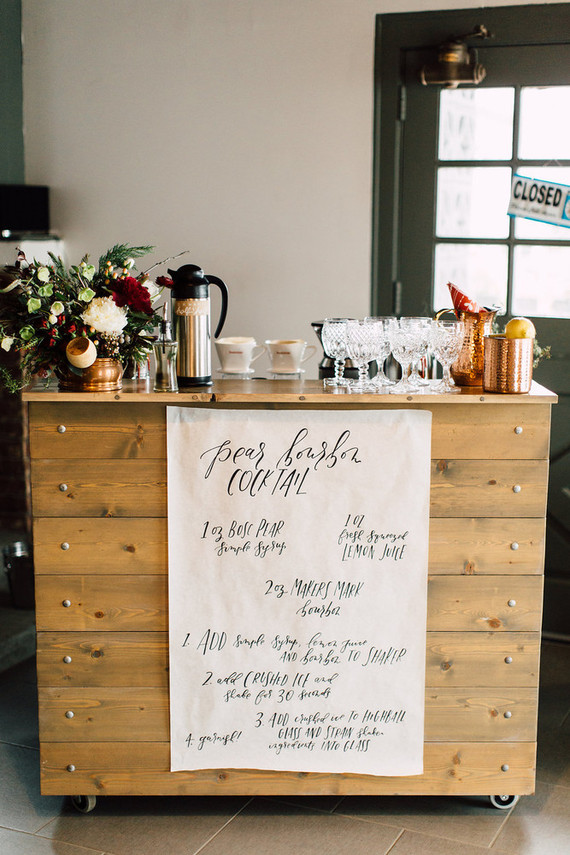 CLOSED
pear bourbon
COCKTAIL
1 oz BOSC PEAR
simple syrup
1 oz
fresh squeezed
LEMON JUICE
2 oz. MAKERS MARK
bourbon
1. ADD simple syrup, lemon juice
AND bourbon TO SHAKER
2. add CRUSHED ICE and
shake for 30 seconds
3. ADD crushed ice to HIGHBALL
GLASS AND STRAIN shaken
ingredients INTO GLASS
4. garnish!